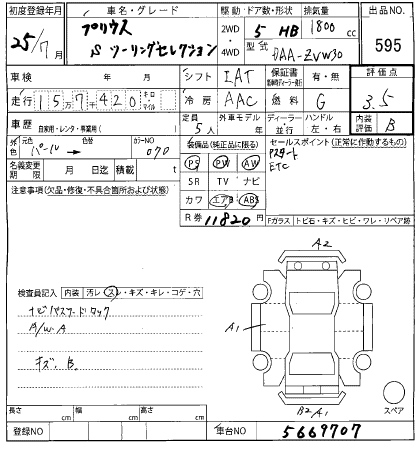 初度登録年月 車名・グレード 駆動 ドア数・形状 排気量 出品NO.
25/7月 プリウス 2WD 5 HB 1800cc 595
S ツーリングセレクション ・4WD 型式 DAA-ZVW30
車検 年 月 シフト IAT 保証書 有・無 評価点
走行 157千420 キロ・マイル 冷房 AAC 燃料 G 3.5
車歴 自家用・レンタ・事業用( ) 定員 5人 外車モデル 年 ディーラー・並行 ハンドル 左・右 内装評価 B
外色 元色 パール 色替 カラーNO 070 装備品(純正品に限る) セールスポイント(正常に作動するもの)
PS PW AW Pスタート
名義変更期限 月 日迄 積載 t SR TV ナビ ETC
注意事項(欠品・修復・不具合箇所および状態) カワ エアB ABS
R券 11820円 Fガラス トビ石・キズ・ヒビ・ワレ・リペア跡
A2
検査員記入 内装 汚レ・スレ・キズ・キレ・コゲ・穴
ナビパスワードロック A1
A/W.A
キズ、B.
スペア
B2/A1
長さ cm 幅 cm 高さ cm
登録NO 車台NO 5669707